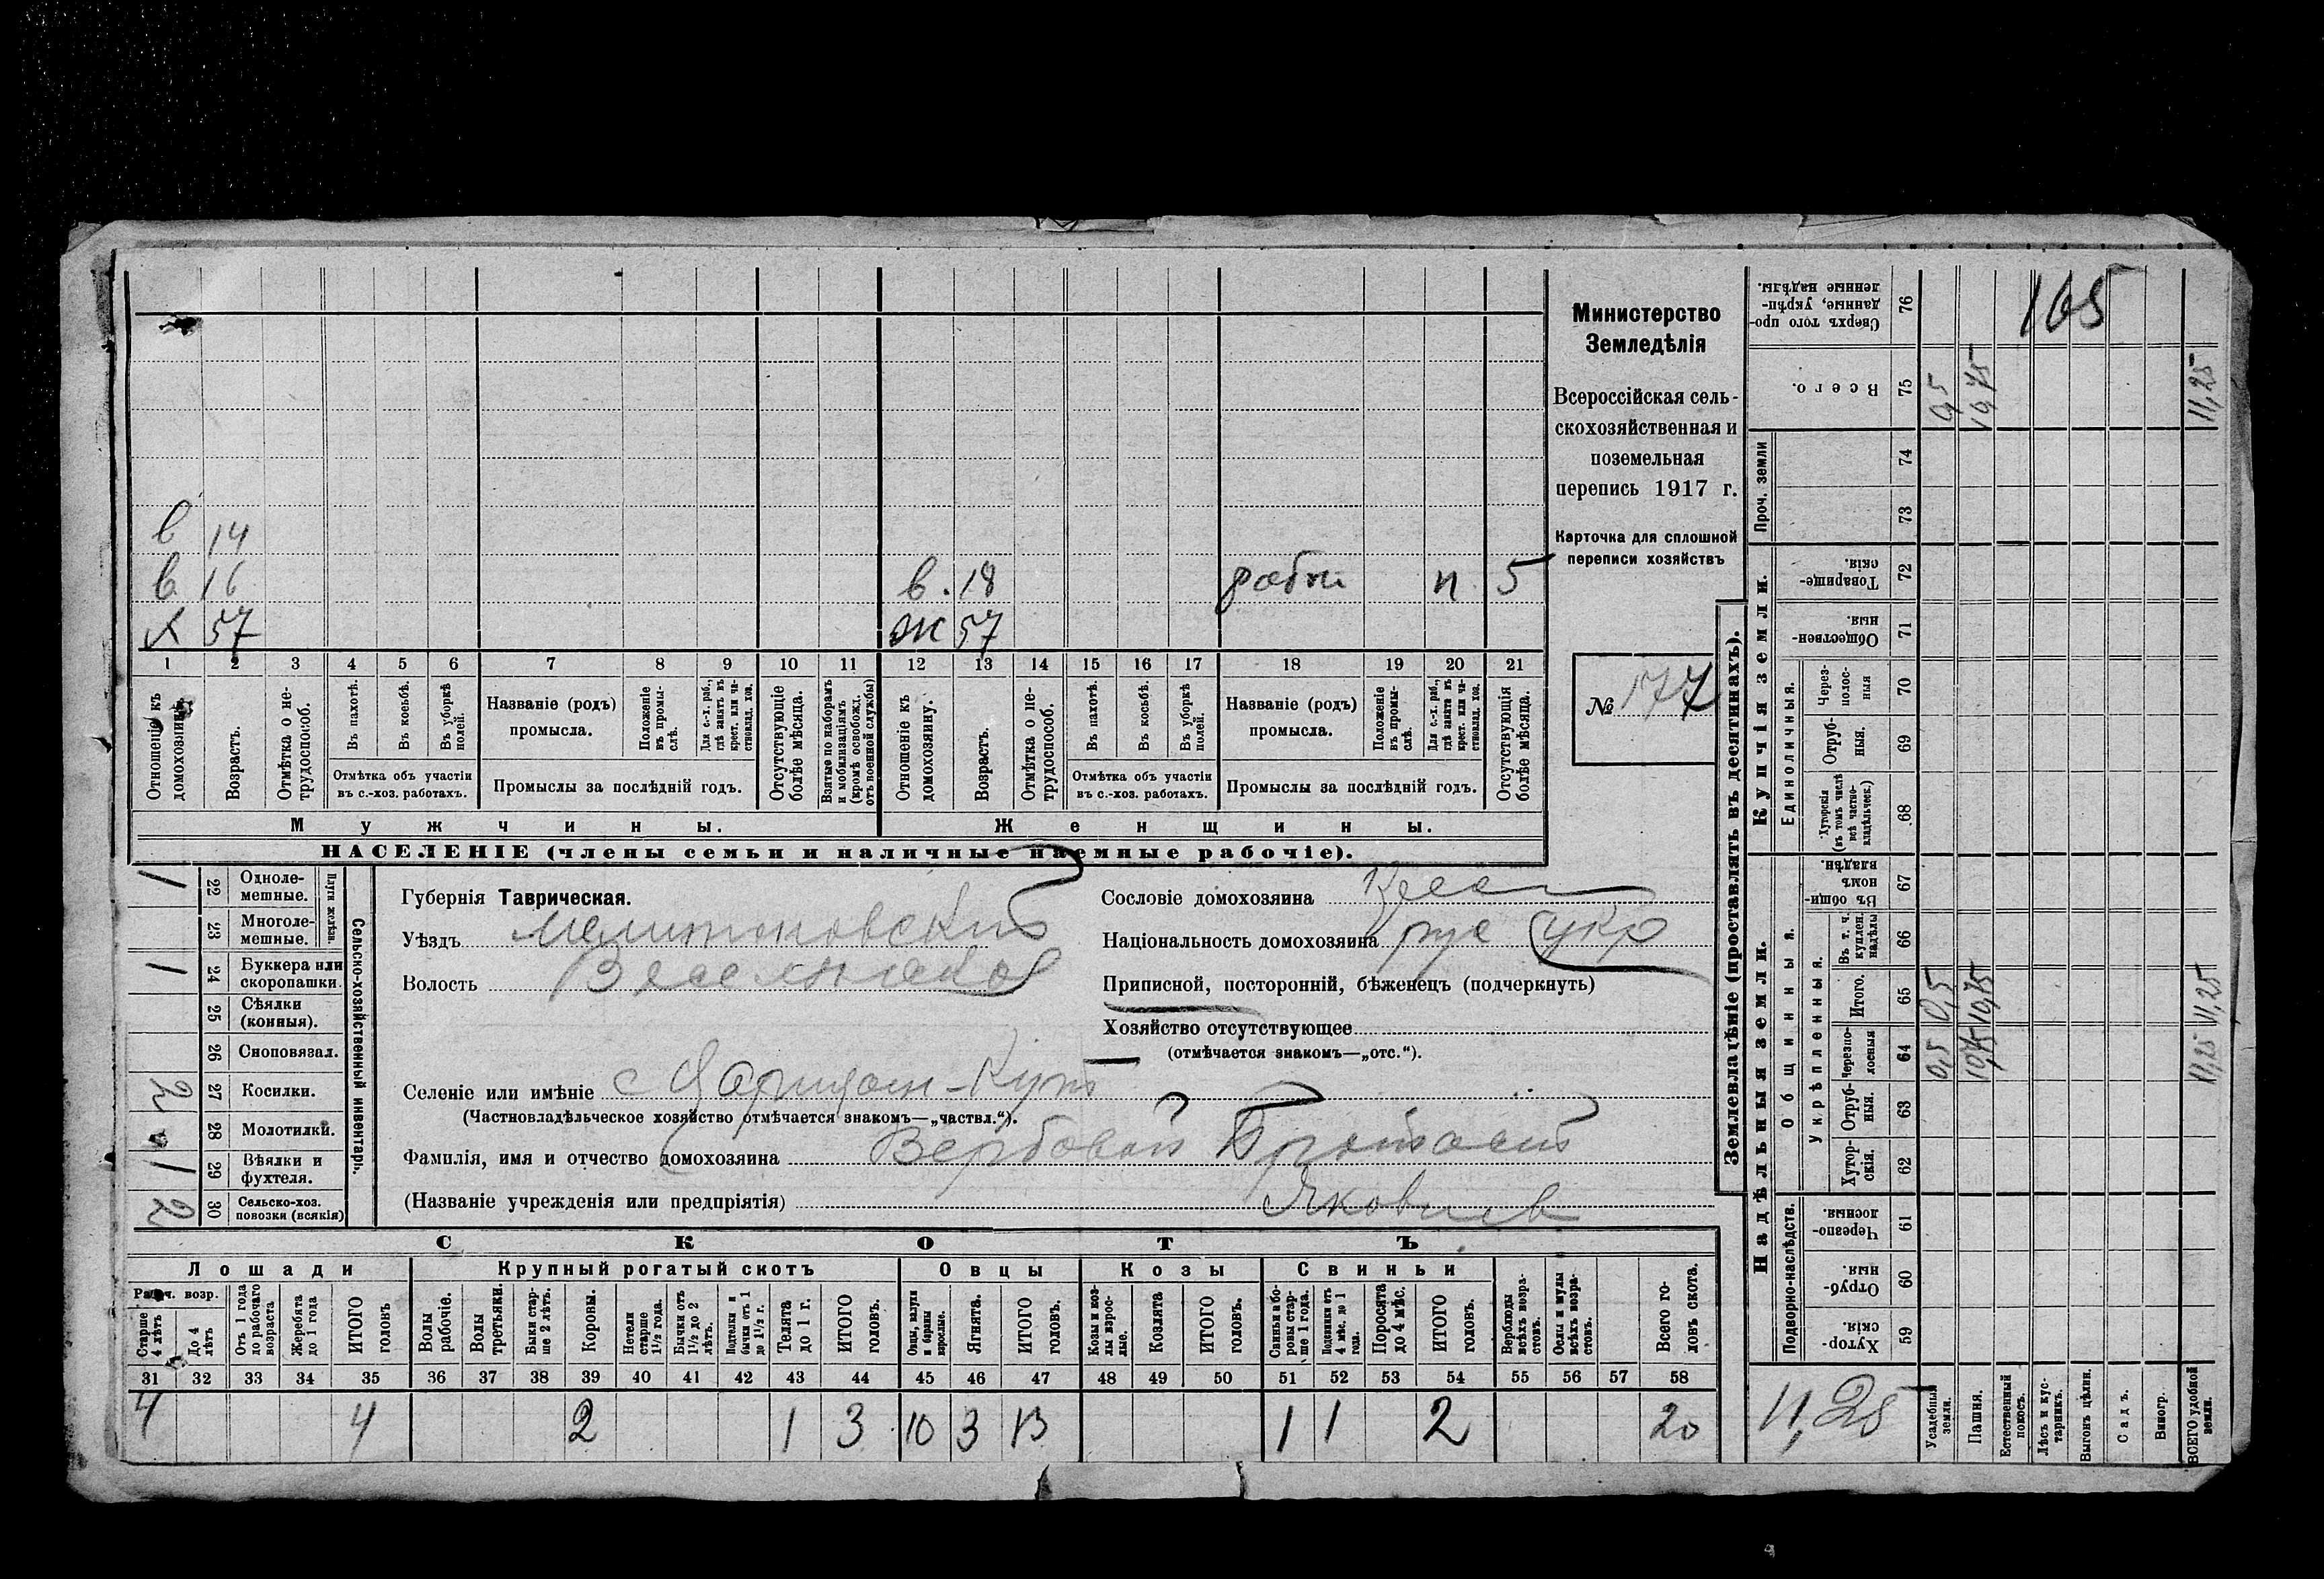 в 14
в 16 в. 18 рабн п 5
х 57 ж 57
1 2 3 4 5 6 7 8 9 10 11 12 13 14 15 16 17 18 19 20 21
Отношеніе къ домохозяину.
Возрастъ.
Отмѣтка о не-трудоспособ.
Въ пахотѣ.
Въ косьбѣ.
Въ уборкѣ полей.
Отмѣтка объ участіи въ с.-хоз. работахъ.
Названіе (родъ) промысла.
Положеніе въ промы-слѣ.
Для с.-х. раб., гдѣ занятъ въ крест. или ча-стновлад. хоз.
Промыслы за послѣдній годъ.
Отсутствующіе болѣе мѣсяца.
Взятые по наборамъ и мобилизаціямъ (кромѣ освобожд. отъ военной службы)
Отношеніе къ домохозяину.
Возрастъ.
Отмѣтка о не-трудоспособ.
Въ пахотѣ.
Въ косьбѣ.
Въ уборкѣ полей.
Отмѣтка объ участіи въ с.-хоз. работахъ.
Названіе (родъ) промысла.
Положеніе въ промы-слѣ.
Для с.-х. раб., гдѣ занята въ крест. или ча-стновлад. хоз.
Промыслы за послѣдній годъ.
Отсутствующія болѣе мѣсяца.
Мужчины. Женщины.
НАСЕЛЕНІЕ (члены семьи и наличные наемные рабочіе).
Министерство
Земледѣлія
Всероссійская сель-
скохозяйственная и
поземельная
перепись 1917 г.
Карточка для сплошной
переписи хозяйствъ
№ 177
Сельско-хозяйственный инвентарь.
Плуги желѣзн.
1 22 Одноле-мешные.
23 Многоле-мешные.
1 24 Буккера или скоропашки.
25 Сѣялки (конныя).
26 Сноповязал.
2 27 Косилки.
28 Молотилки.
1 29 Вѣялки и фухтеля.
2 30 Сельско-хоз. повозки (всякія)
Губернія Таврическая.
Уѣздъ Мелитоповский
Волость Веселовской
Селеніе или имѣніе
(Частновладѣльческое хозяйство отмѣчается знакомъ—„частвл.“).
Фамилія, имя и отчество домохозяина Вербовой
Яковлев
(Названіе учрежденія или предпріятія)
Сословіе домохозяина
Національность домохозяина рус укр
Приписной, посторонній, бѣженецъ (подчеркнуть)
Хозяйство отсутствующее
(отмѣчается знакомъ—„отс.“).
СКОТЪ
Лошади Крупный рогатый скотъ Овцы Козы Свиньи
Рабоч. возр.
Старше 4 лѣтъ
До 4 лѣтъ
Отъ 1 года до рабочаго возраста
Жеребята до 1 года
ИТОГО головъ
Волы рабочіе.
Волы третьяки.
Быки стар-ше 2 лѣтъ.
Коровы.
Нетели старше 1½ года.
Бычки отъ 1½ до 2 лѣтъ.
Подтелки и бычки отъ 1 до 1½ г.
Телята до 1 г.
ИТОГО головъ.
Овцы, валухи и бараны взрослые.
Ягнята.
ИТОГО головъ.
Козы и коз-лы взрос-лые.
Козлята
ИТОГО головъ.
Свиньи и бо-ровы стар-ше 1 года.
Подсвинки отъ 4 мѣс. до 1 года.
Поросята до 4 мѣс.
ИТОГО головъ.
Верблюды всѣхъ возра-стовъ.
Ослы и мулы всѣхъ возра-стовъ.
Всего го-ловъ скота.
31 32 33 34 35 36 37 38 39 40 41 42 43 44 45 46 47 48 49 50 51 52 53 54 55 56 57 58
4 4 2 1 3 10 3 13 1 1 2 20
Землевладѣніе (проставлять въ десятинахъ).
Надѣльныя земли. Купчія земли. Проч. земли
Подворно-наслѣдств.
Общинныя.
Укрѣпленныя.
Единоличныя.
Хутор-скія. 59
Отруб-ныя. 60
Черезпо-лосныя. 61
Хутор-скія. 62
Отруб-ныя. 63
Черезпо-лосныя 64
Итого. 65
Въ т. ч. куплен. надѣлы 66
Въ общин-номъ владѣн. 67
Хуторскія (въ томъ числѣ всѣ частно-владѣльческ.) 68
Отруб-ныя. 69
Через-полос-ныя 70
Обществен-ныя. 71
Товарище-скія. 72
73
74
Всего. 75
Сверхъ того про-данные, укрѣп-ленные надѣлы. 76
165
11,25
Усадебныя земли. 0,5 0,5
Пашня. 10,75 10,75 10,75
Естественный покосъ.
Лѣсъ и кус-тарникъ.
Выгонъ цѣлин.
Садъ.
Виногр.
ВСЕГО удобной земли. 11,25 11,25 11,25